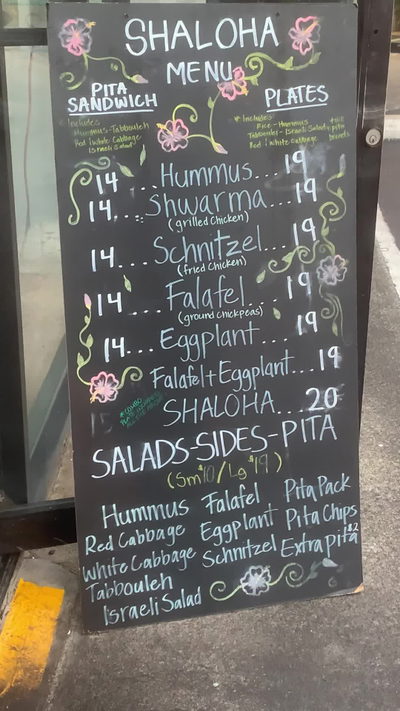 SHALOHA
MENU
PITA
SANDWICH
PLATES
Includes
Hummus-Tabbouleh
Red/White Cabbage
Israeli Salad
* Includes
Rice-Hummus
Tabbouleh-Israeli Salad
Red/White Cabbage
14...Hummus...19
14....Shwarma...19
(grilled Chicken)
14....Schnitzel...19
(fried Chicken)
14....Falafel....19
(ground chickpeas)
14...Eggplant...19
Falafel+Eggplant...19
SHALOHA...20
SALADS-SIDES-PITA
(Sm $10/Lg $19)
Hummus Falafel Pita Pack
Red Cabbage Eggplant Pita Chips
White Cabbage Schnitzel Extra pita $2
Tabbouleh
Israeli Salad